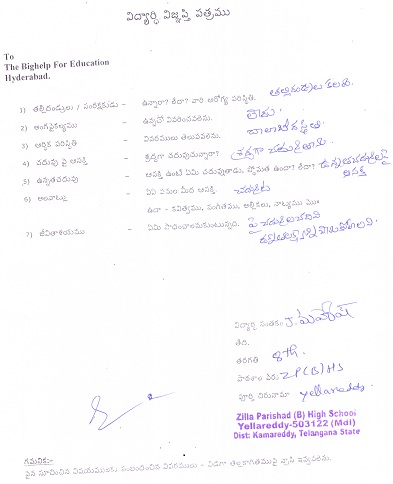 విద్యార్థి విజ్ఞప్తి పత్రము
To
The Bighelp For Education
Hyderabad.
1) తల్లిదండ్రులు / సంరక్షకుడు - ఉన్నారా? లేదా? వారి ఆరోగ్య పరిస్థితి. తల్లిదండ్రులు కలరు.
2) అంగవైకల్యము - ఉన్నచో వివరించవలెను. లేదు.
3) ఆర్థిక పరిస్థితి - వివరములు తెలుపవలెను.
4) చదువు పై ఆసక్తి - శ్రద్ధగా చదువుచున్నారా? శ్రద్ధగా చదువుతాడు
5) ఉన్నతచదువు - ఆసక్తి ఉంటే ఏమి చదువుతాడు, స్తోమత ఉందా? లేదా?
6) అలవాట్లు - ఏఏ పనుల మీద ఆసక్తి. చదువుట
ఉదా - కవిత్వము, సంగీతము, అల్లికలు, నాట్యము మొ॥
7) జీవితాశయము - ఏమి సాధించాలనుకుంటున్నది. పై చదువులు చదివి
విద్యార్థి సంతకం J. మహేష్
తేది.
తరగతి 8th.
పాఠశాల పేరు ZP(B)HS
పూర్తి చిరునామా yellareddy.
Zilla Parishad (B) High School
Yellareddy-503122 (Mdl)
Dist: Kamareddy, Telangana State
గమనిక:-
పైన సూచించిన విషయములకు సంబంధించిన వివరములు - విడిగా తెల్లకాగితముపై వ్రాసి ఇవ్వవలెను.